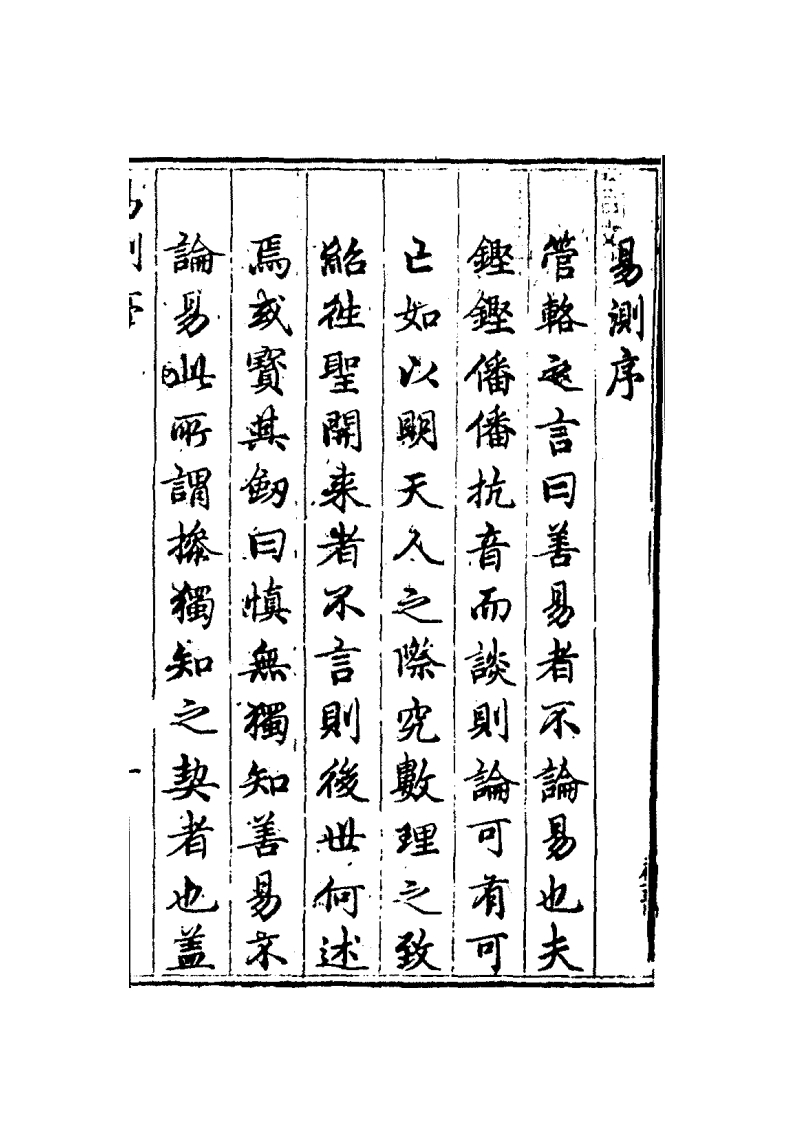 易測序
管輅之言曰善易者不論易也夫
鏗鏗僠僠抗音而談則論可有可
已如以明天人之際究數理之致
紹往聖開来者不言則後世何述
焉或寳其劒曰慎無獨知善易不
論易此所謂探獨知之契者也盖